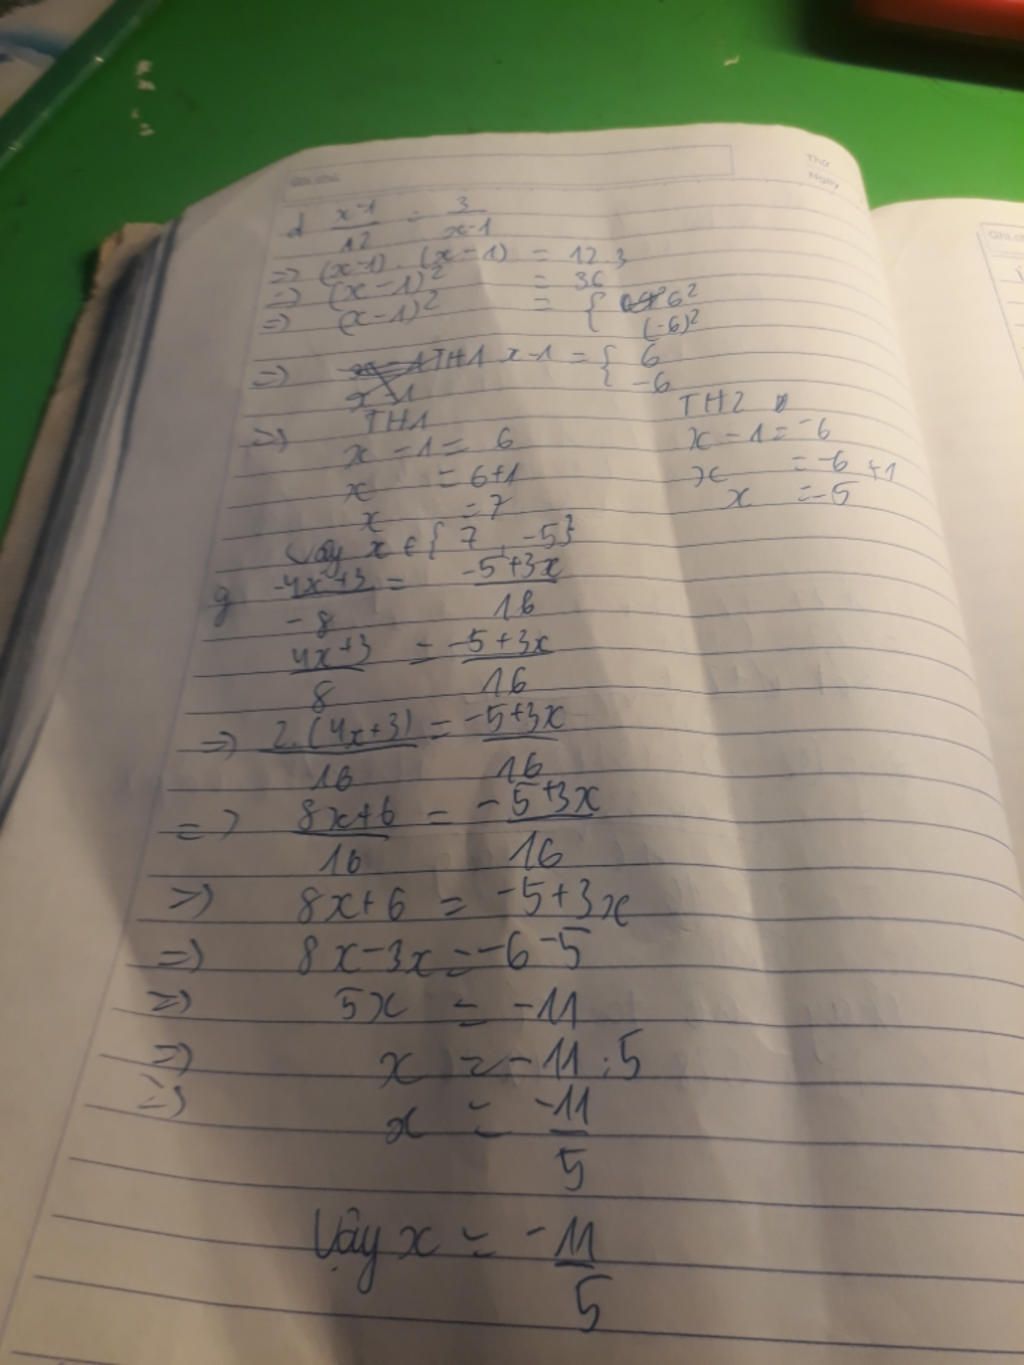 Thứ
Ngày
d x-1/12 = 3/x-1
=> (x-1) . (x-1) = 12.3
=> (x-1)² = 36
=> (x-1)² = { 6²
(-6)²
=> TH1 x-1 = { 6
-6
x-1
=> TH1 TH2
x-1 = 6 x-1 = -6
x = 6+1 x = -6+1
x = 7 x = -5
Vậy x ∈ { 7, -5}
g -4x+3/-8 = -5+3x/16
4x+3/8 = -5+3x/16
=> 2.(4x+3)/16 = -5+3x/16
=> 8x+6/16 = -5+3x/16
=> 8x+6 = -5+3x
=> 8x-3x = -6-5
=> 5x = -11
=> x = -11:5
=> x = -11/5
Vậy x = -11/5